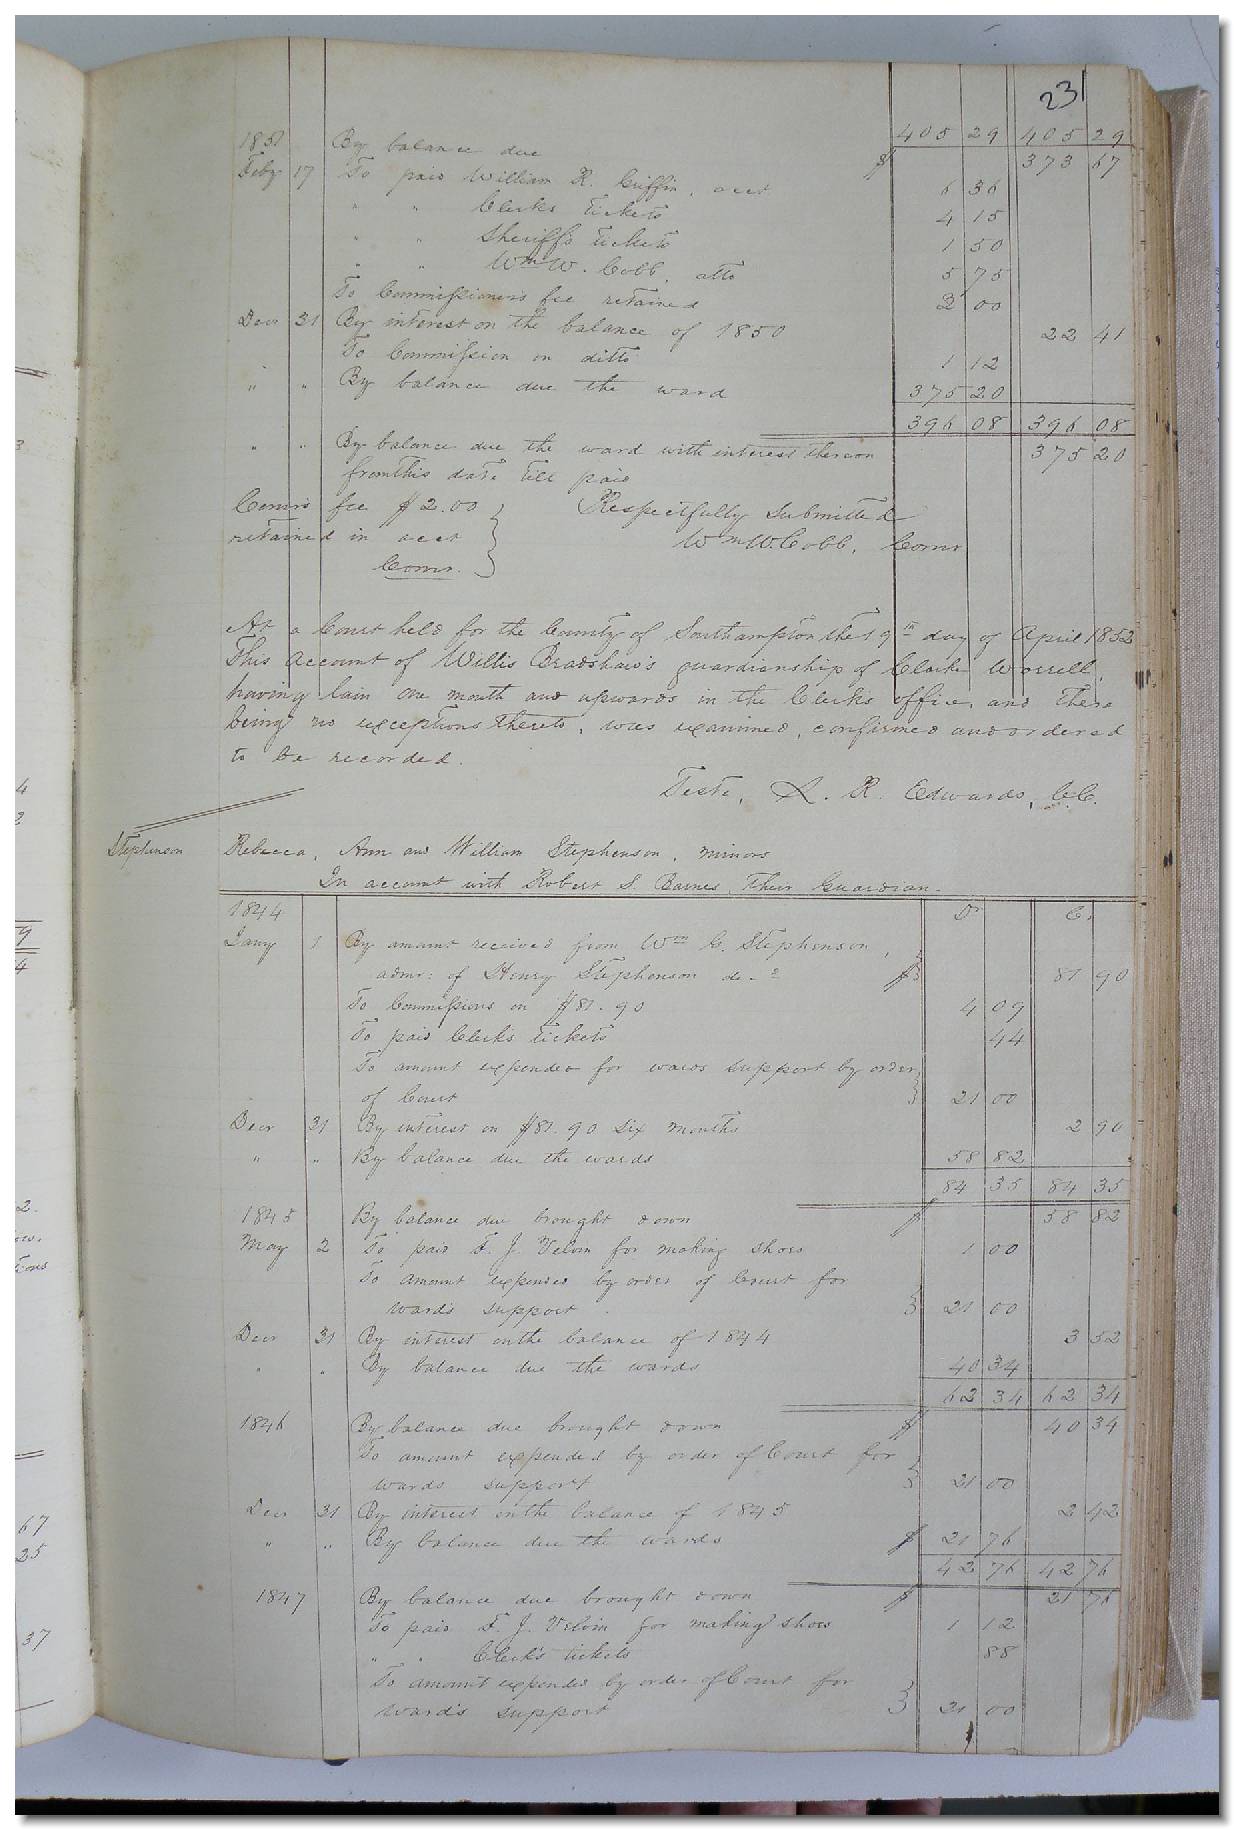 231
405 29 405 29
1851 By balance due $ 373 67
Feby 17 To paid William R. Griffin, acct 6 36
" " Clerks tickets 4 15
" " Sheriffs tickets 1 50
" " Wm W. Cobb, atto 5 75
To Commissioners fee retained 2 00
Decr 31 By interest on the balance of 1850 22 41
To Commission on ditto 1 12
" " By balance due the ward 375 20
396 08 396 08
" " By balance due the ward with interest thereon 375 20
from this date till paid
Comrs fee $2.00 Respectfully Submitted
retained in acct Wm W. Cobb, Comr
Comr.
At a Court held for the County of Southampton the 19th day of April 1852
This Account of Willis Bradshaw's guardianship of Clarke Worrell,
having lain one month and upwards in the Clerks office, and there
being no exceptions thereto, was examined, confirmed and ordered
to be recorded.
Teste, L. R. Edwards, CC.
Stephenson Rebecca, Ann and William Stephenson, minors
In account with Robert S. Barnes, Their Guardian.
1844 Dr Cr
Jany 1 By amount received from Wm C. Stephenson,
admr: of Henry Stephenson de-d $ 81 90
To Commissions on $81.90 4 09
To paid Clerk's tickets 44
To amount expended for wards support by order
of Court 21 00
Decr 31 By interest on $81.90 six months 2 90
" " By balance due the wards 58 82
84 35 84 35
1845 By balance due brought down $ 58 82
May 2 To paid F. J. Velvin for making shoes 1 00
To amount expended by order of Court for
ward's support 21 00
Decr 31 By interest on the balance of 1844 3 52
" " By balance due the wards 40 34
62 34 62 34
1846 By balance due brought down $ 40 34
To amount expended by order of Court for
wards support 21 00
Decr 31 By interest on the balance of 1845 2 42
" " By balance due the wards $ 21 76
42 76 42 76
1847 By balance due brought down $ 21 76
To paid F. J. Velvin for making shoes 1 12
" " Clerk's tickets 88
To amount expended by order of Court for
ward's support 21 00